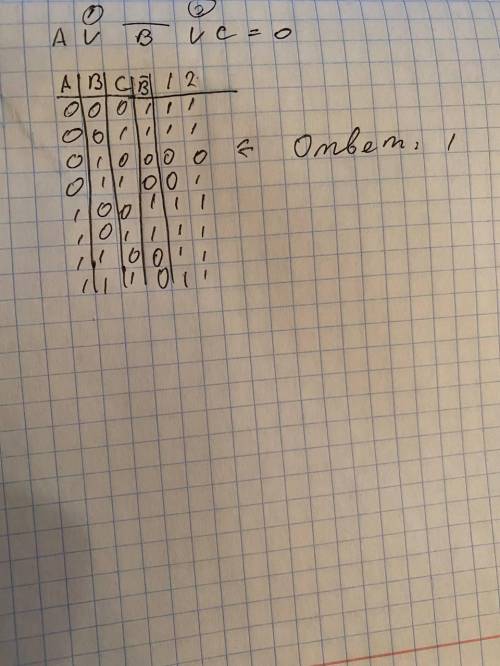 ① ②
A ∨ B̅ ∨ C = 0
A B C B̅ 1 2
0 0 0 1 1 1
0 0 1 1 1 1
0 1 0 0 0 0 ← Ответ: 1
0 1 1 0 0 1
1 0 0 1 1 1
1 0 1 1 1 1
1 1 0 0 1 1
1 1 1 0 1 1